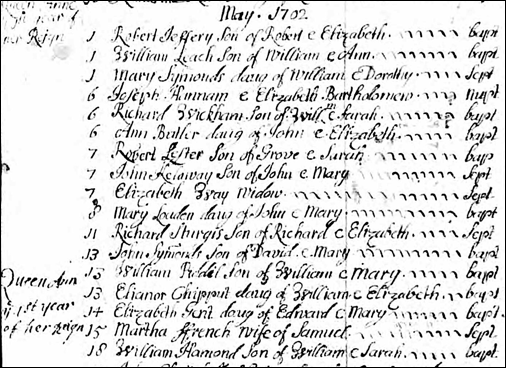 May. 1702
Queen Anne
year of
her Reign
1 Robert Jeffery Son of Robert & Elizabeth. bapt
1 William Leach Son of William & Ann. bapt
1 Mary Symonds daug of William & Dorothy. Sept
6 Joseph Hannam & Elizabeth Bartholomew nupt
6 Richard Wickham Son of Will^m & Sarah. bapt
6 Ann Butler daug of John & Elizabeth bapt
7 Robert Lester Son of Grove & Sarah bap
7 John Keloway Son of John & Mary Sept
7 Elizabeth Way Widow Sept.
8 Mary Louden daug of John & Mary bapt
11 Richard Sturgis Son of Richard & Elizabeth. Sept.
13 John Symonds Son of David & Mary bapt
13 William Son of William & Mary. bapt
13 Elianor daug of William & Elizabeth. bapt.
Queen Ann
y 1st year
of her Reign
14 Elizabeth daug of Edward & Mary bapt.
15 Martha ffrench wife of Samuel Sept.
18 William Hamond Son of William & Sarah. bapt